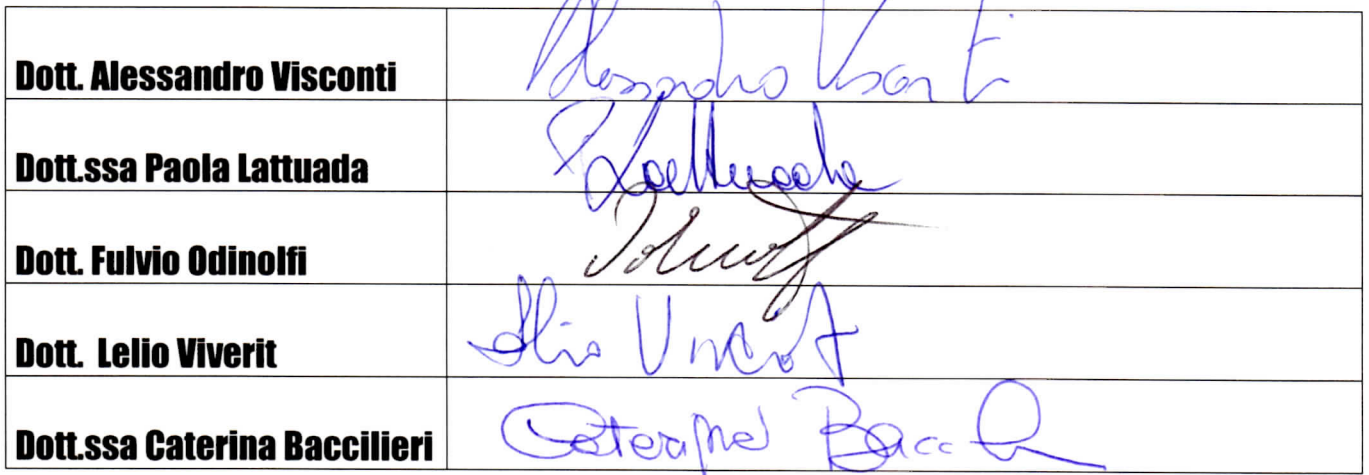 Dott. Alessandro Visconti Alessandro Visconti
Dott.ssa Paola Lattuada PLattuada
Dott. Fulvio Odinolfi
Dott. Lelio Viverit
Dott.ssa Caterina Baccilieri Caterina